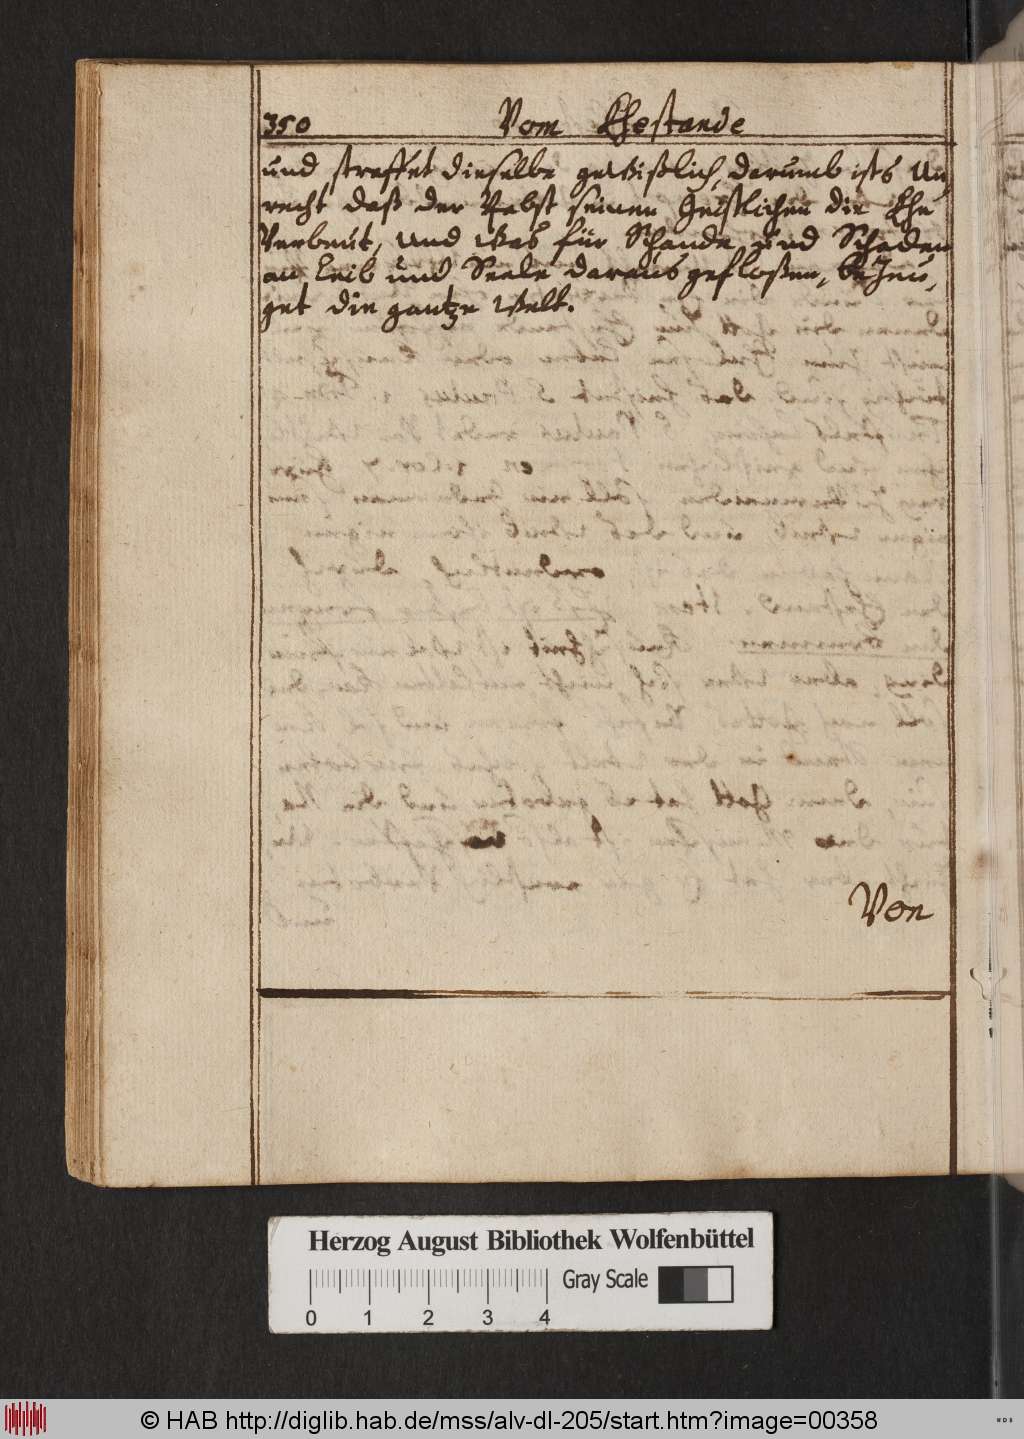 350 Vom Ehestande
und straffet dieselbe gewißlich, darumb ists Un,
recht daß der Pabst seinen Geistlichen die Ehe
Verbeut, und was für Schande und Schaden
an Leib und Seele daraus gefloßen, bezeu,
get die gantze Welt.
Von
Herzog August Bibliothek Wolfenbüttel
Gray Scale
0 1 2 3 4
© HAB http://diglib.hab.de/mss/alv-dl-205/start.htm?image=00358